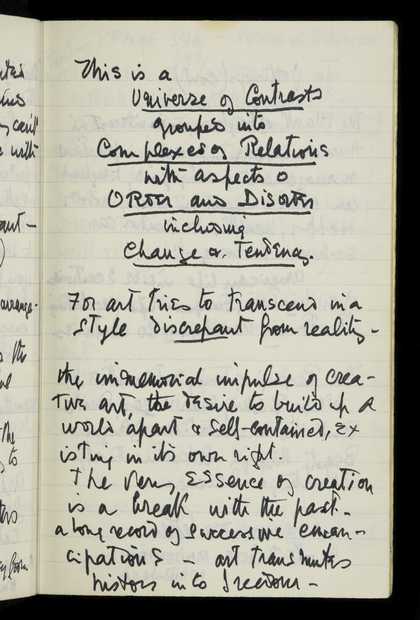 This is a
Universe of Contrasts
grouped into
Complexes of Relations
with aspects o
ORDER and Disorder
including
Change & Tendency.
For art tries to transcend in a
style discrepant from reality -
the immemorial impulse of crea-
tive art, the desire to build up a
world apart & self-contained, ex
isting in its own right.
The very essence of creation
is a break with the past -
a long record of successive eman-
cipations - art transmutes
history into freedom -